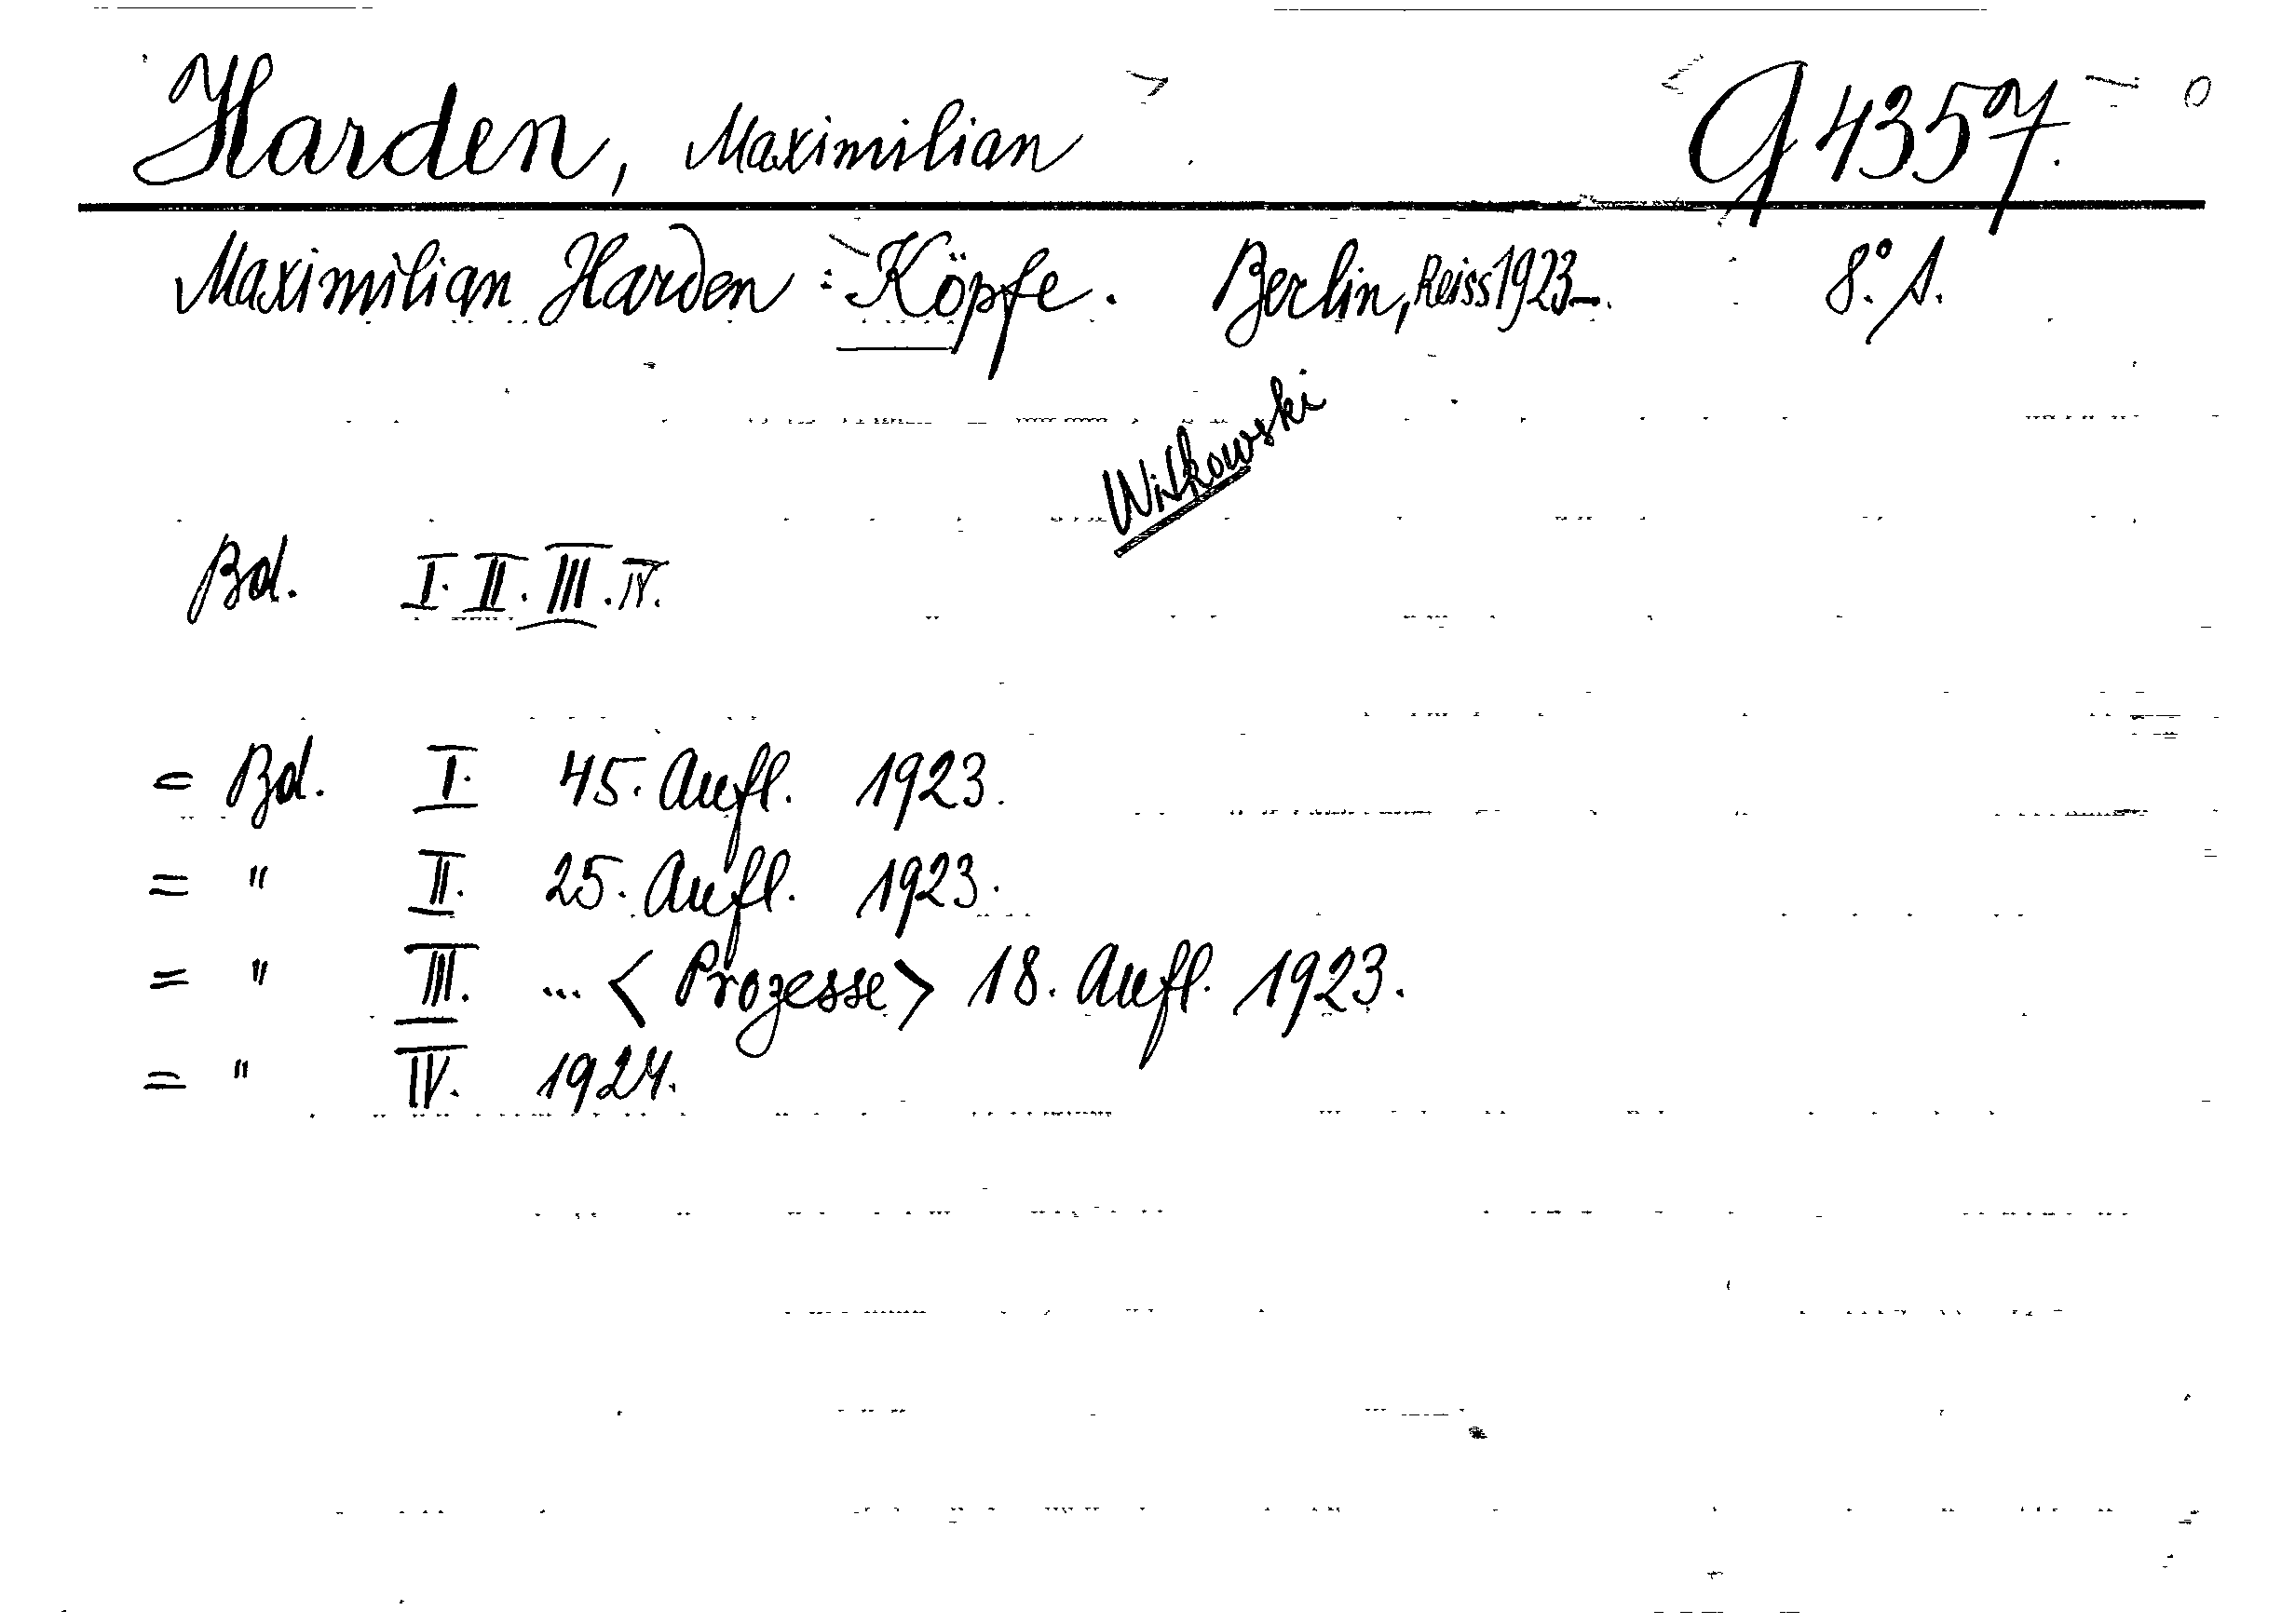 Harden, Maximilian G 4357.
Maximilian Harden: Köpfe. Berlin, Reiss 1923-. 8°. A.
Witkowski
Bd. I. II. III. IV.
= Bd. I. 45. Aufl. 1923.
= " II. 25. Aufl. 1923.
= " III. ... < Prozesse > 18. Aufl. 1923.
= " IV. 1924.